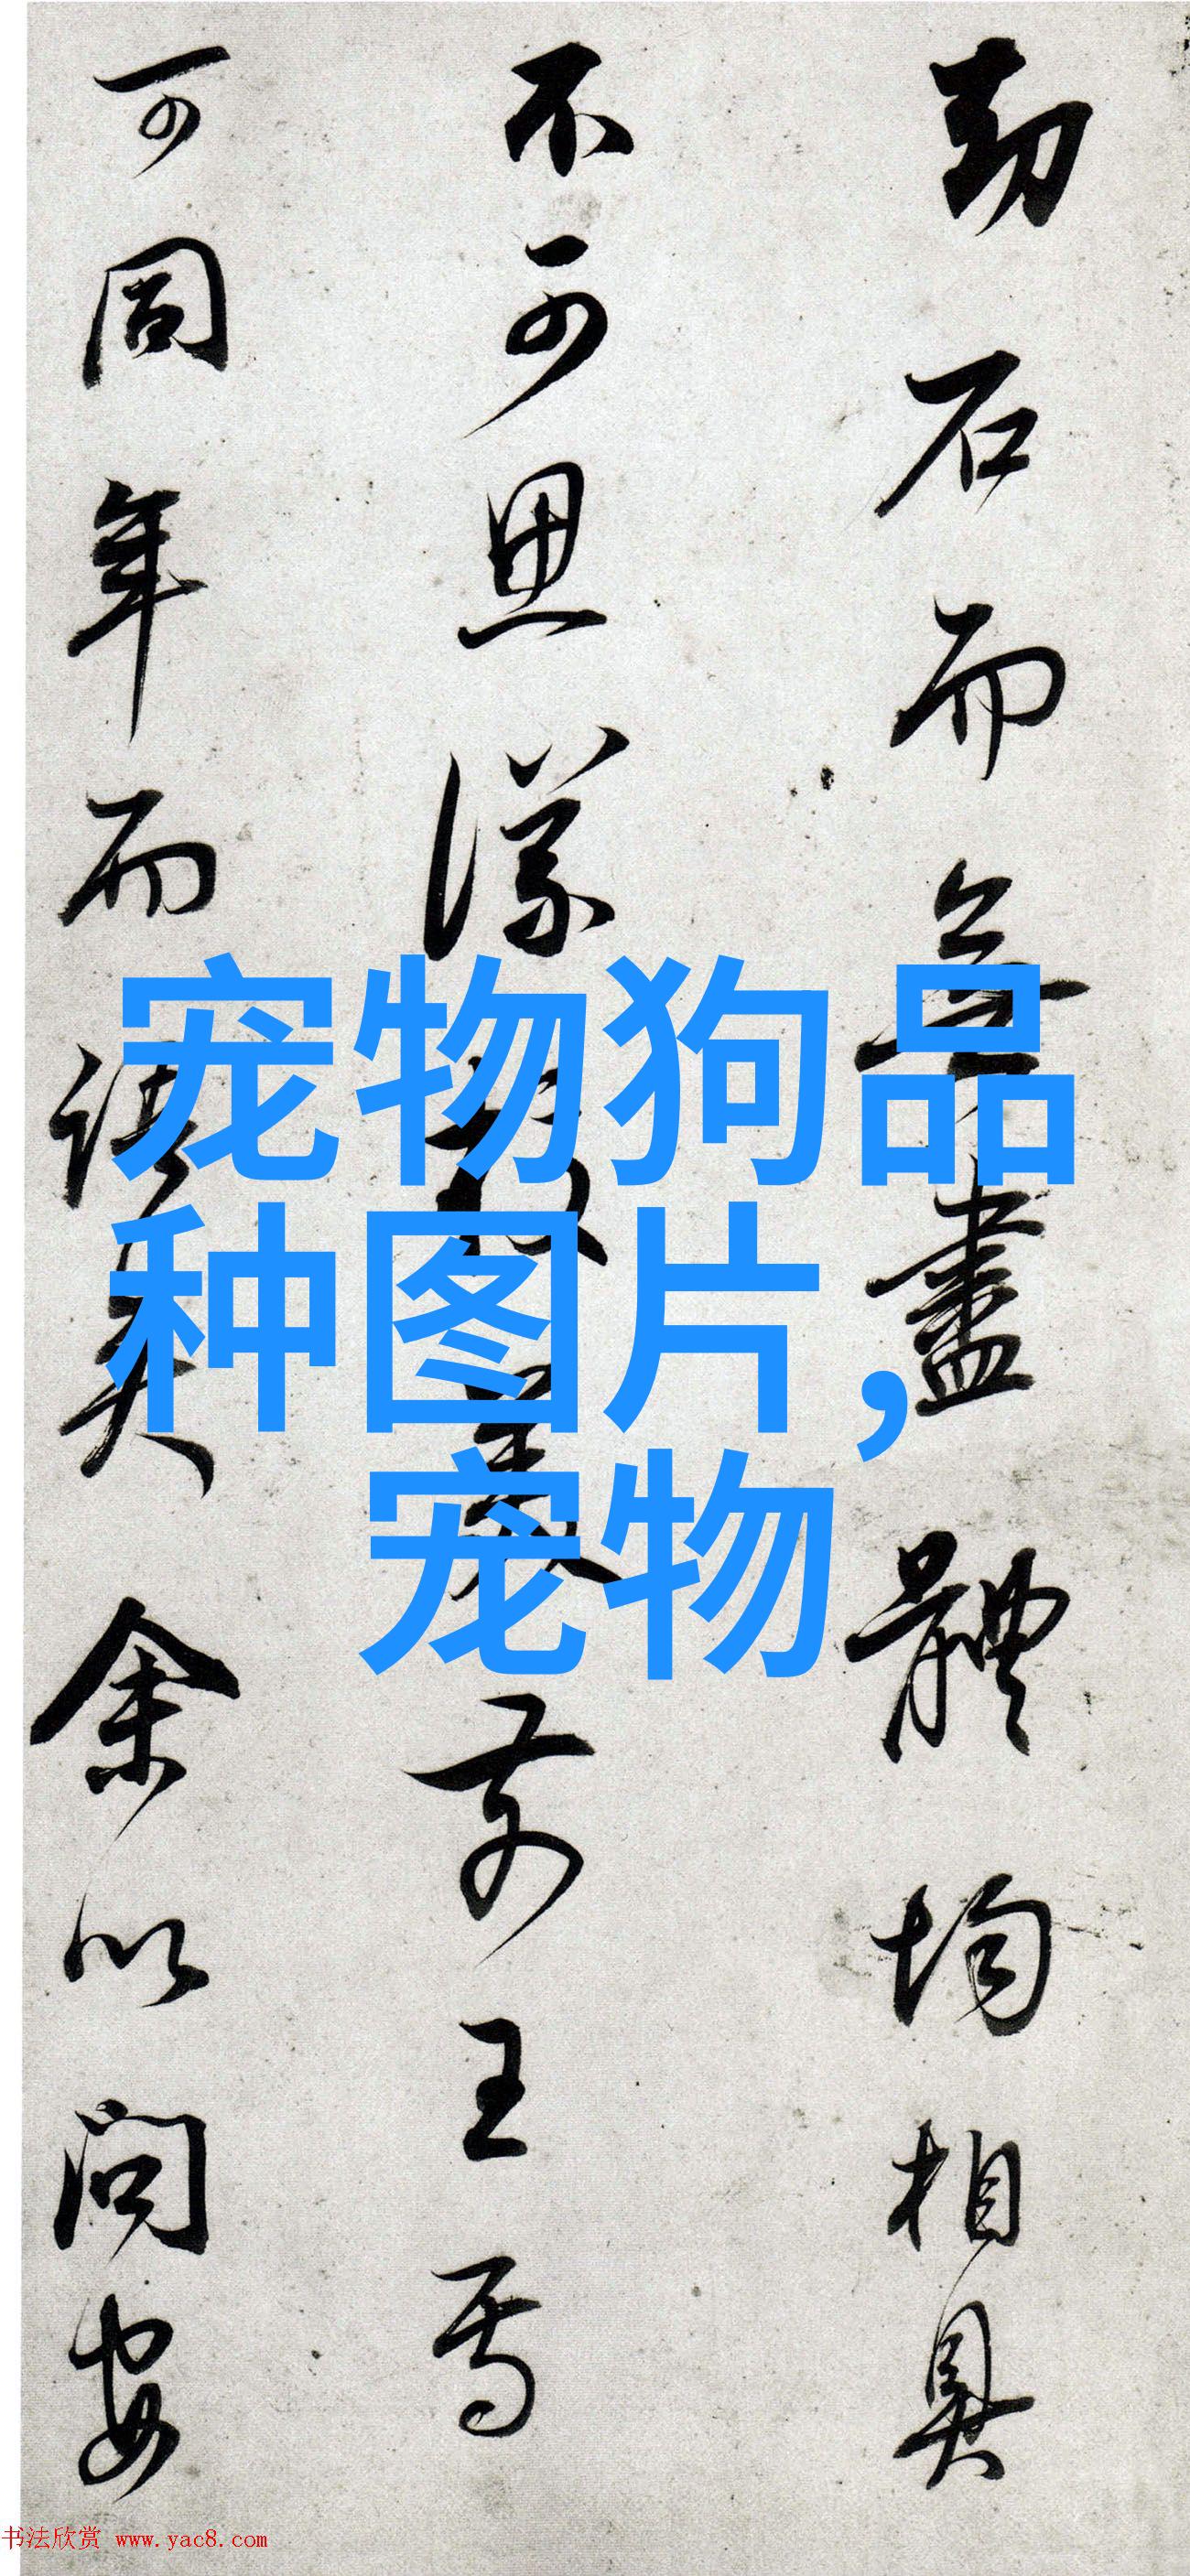 劫石而無盡體均相具
不可思議
前王焉
可同年而語矣余以閒安
宠物狗品
种图片，
宠物
书法欣赏 www.yac8.com